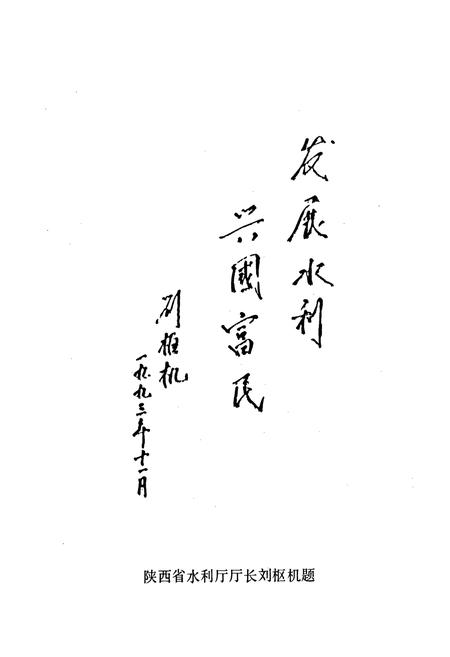 发展水利
兴國富民
刘枢机
一九九三年十一月
陕西省水利厅厅长刘枢机题